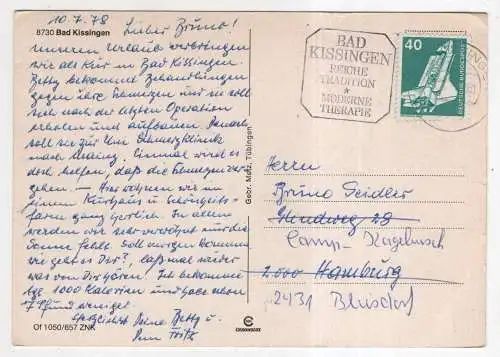 10.7.78
8730 Bad Kissingen
Lieber Bruno!
unseren Urlaub verbringen
wir als Kur in Bad Kissingen.
Betty bekommt Behandlungen
gegen ihre Schmerzen und sie soll
sich nach der letzten Operation
erholen und aufbauen. Danach
soll sie zur Schmerzklinik
nach Mainz. Einmal wird es
doch helfen, daß die Schmerzen
gehen — Hier wohnen wir in
einem Kurhaus u Schönheits-
farm ganz herrlich. In allem
werden wir sehr verwöhnt nur die
Sonne fehlt. Soll morgen kommen
wie geht es Dir?, daß mal wieder
was von Dir hören. Ich bekomme
tgl. 1000 Kalorien und habe schon
7 Pfund weniger.
Deine Betty u.
Fritz
Of 1050/657 ZNK
Georg Metz, Tübingen
BAD
KISSINGEN
REICHE
TRADITION
★
MODERNE
THERAPIE
40
DEUTSCHE BUNDESPOST
Herrn
Bruno Seidler
2000 Hamburg
2431 Bliesdorf